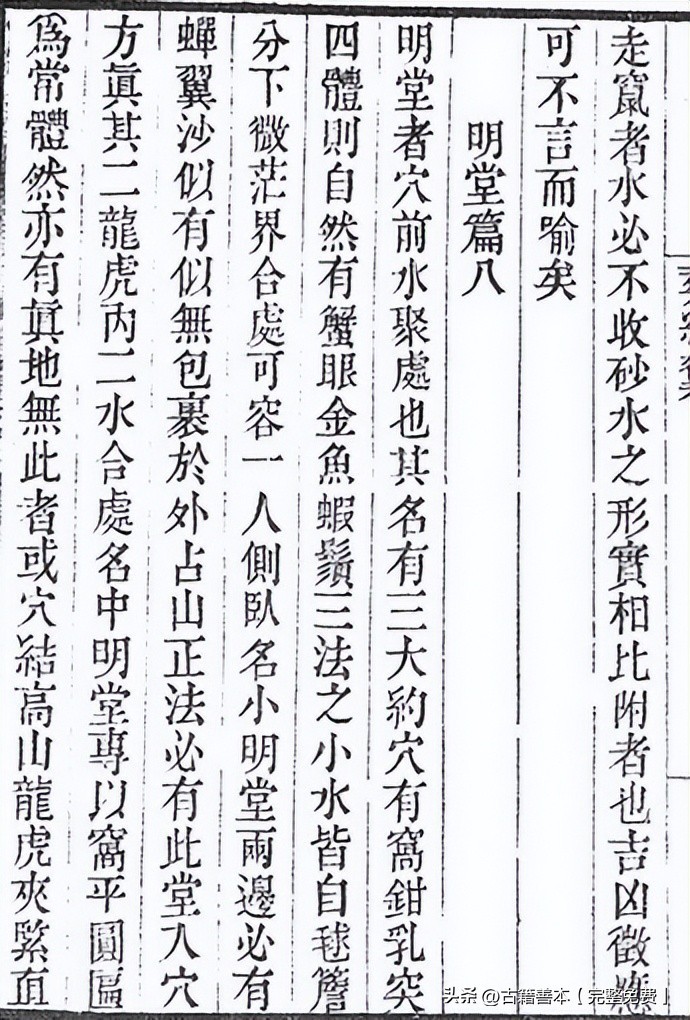 走竄者水必不收砂水之形實相比附者也吉凶徵應
可不言而喻矣
明堂篇八
明堂者穴前水聚處也其名有三大約穴有窩鉗乳突
四體則自然有蟹眼金魚蝦鬚三法之小水皆自毬簷
分下微茫界合處可容一人側臥名小明堂兩邊必有
蟬翼沙似有似無包裹於外占山正法必有此堂入穴
方眞其二龍虎內二水合處名中明堂專以窩平圓區
爲常體然亦有眞地無此者或穴結高山龍虎夾緊直
头条 @古籍善本【完整免费】